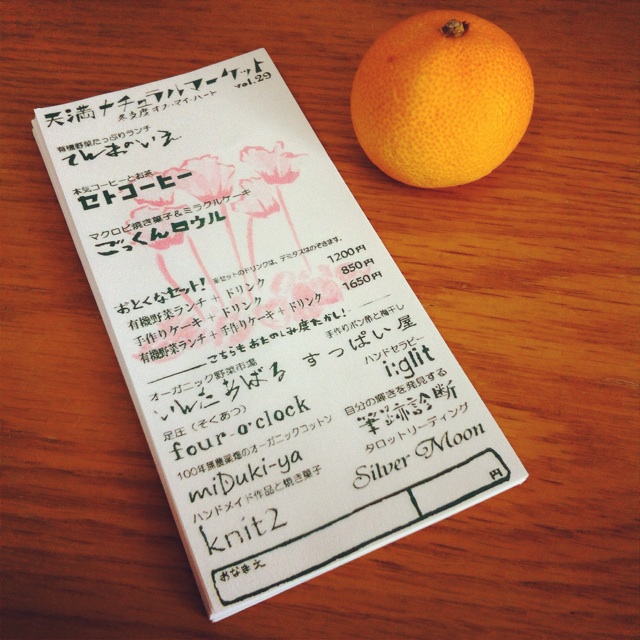 天満ナチュラルマーケット
vol.29
有機野菜たっぷりランチ
てんまのいえ
本気コーヒーとお茶
セトコーヒー
マクロビ焼き菓子＆ミラクルケーキ
ごっくんロウル
おとくなセット! ※セットのドリンクは、デミタスはのぞきます。
有機野菜ランチ + ドリンク 1200円
手作りケーキ + ドリンク 850円
有機野菜ランチ + 手作りケーキ + ドリンク 1650円
こちらもおたのしみ度たかし!
オーガニック野菜市場
いんたあばる
足圧（そくあつ）
four-o'clock
100年無農薬畑のオーガニックコットン
miDuki-ya
ハンドメイド作品と焼き菓子
knit2
手作りポン酢と梅干し
すっぱい屋
ハンドセラピー
i:glit
自分の輝きを発見する
筆跡診断
タロットリーディング
Silver Moon
おなまえ
円